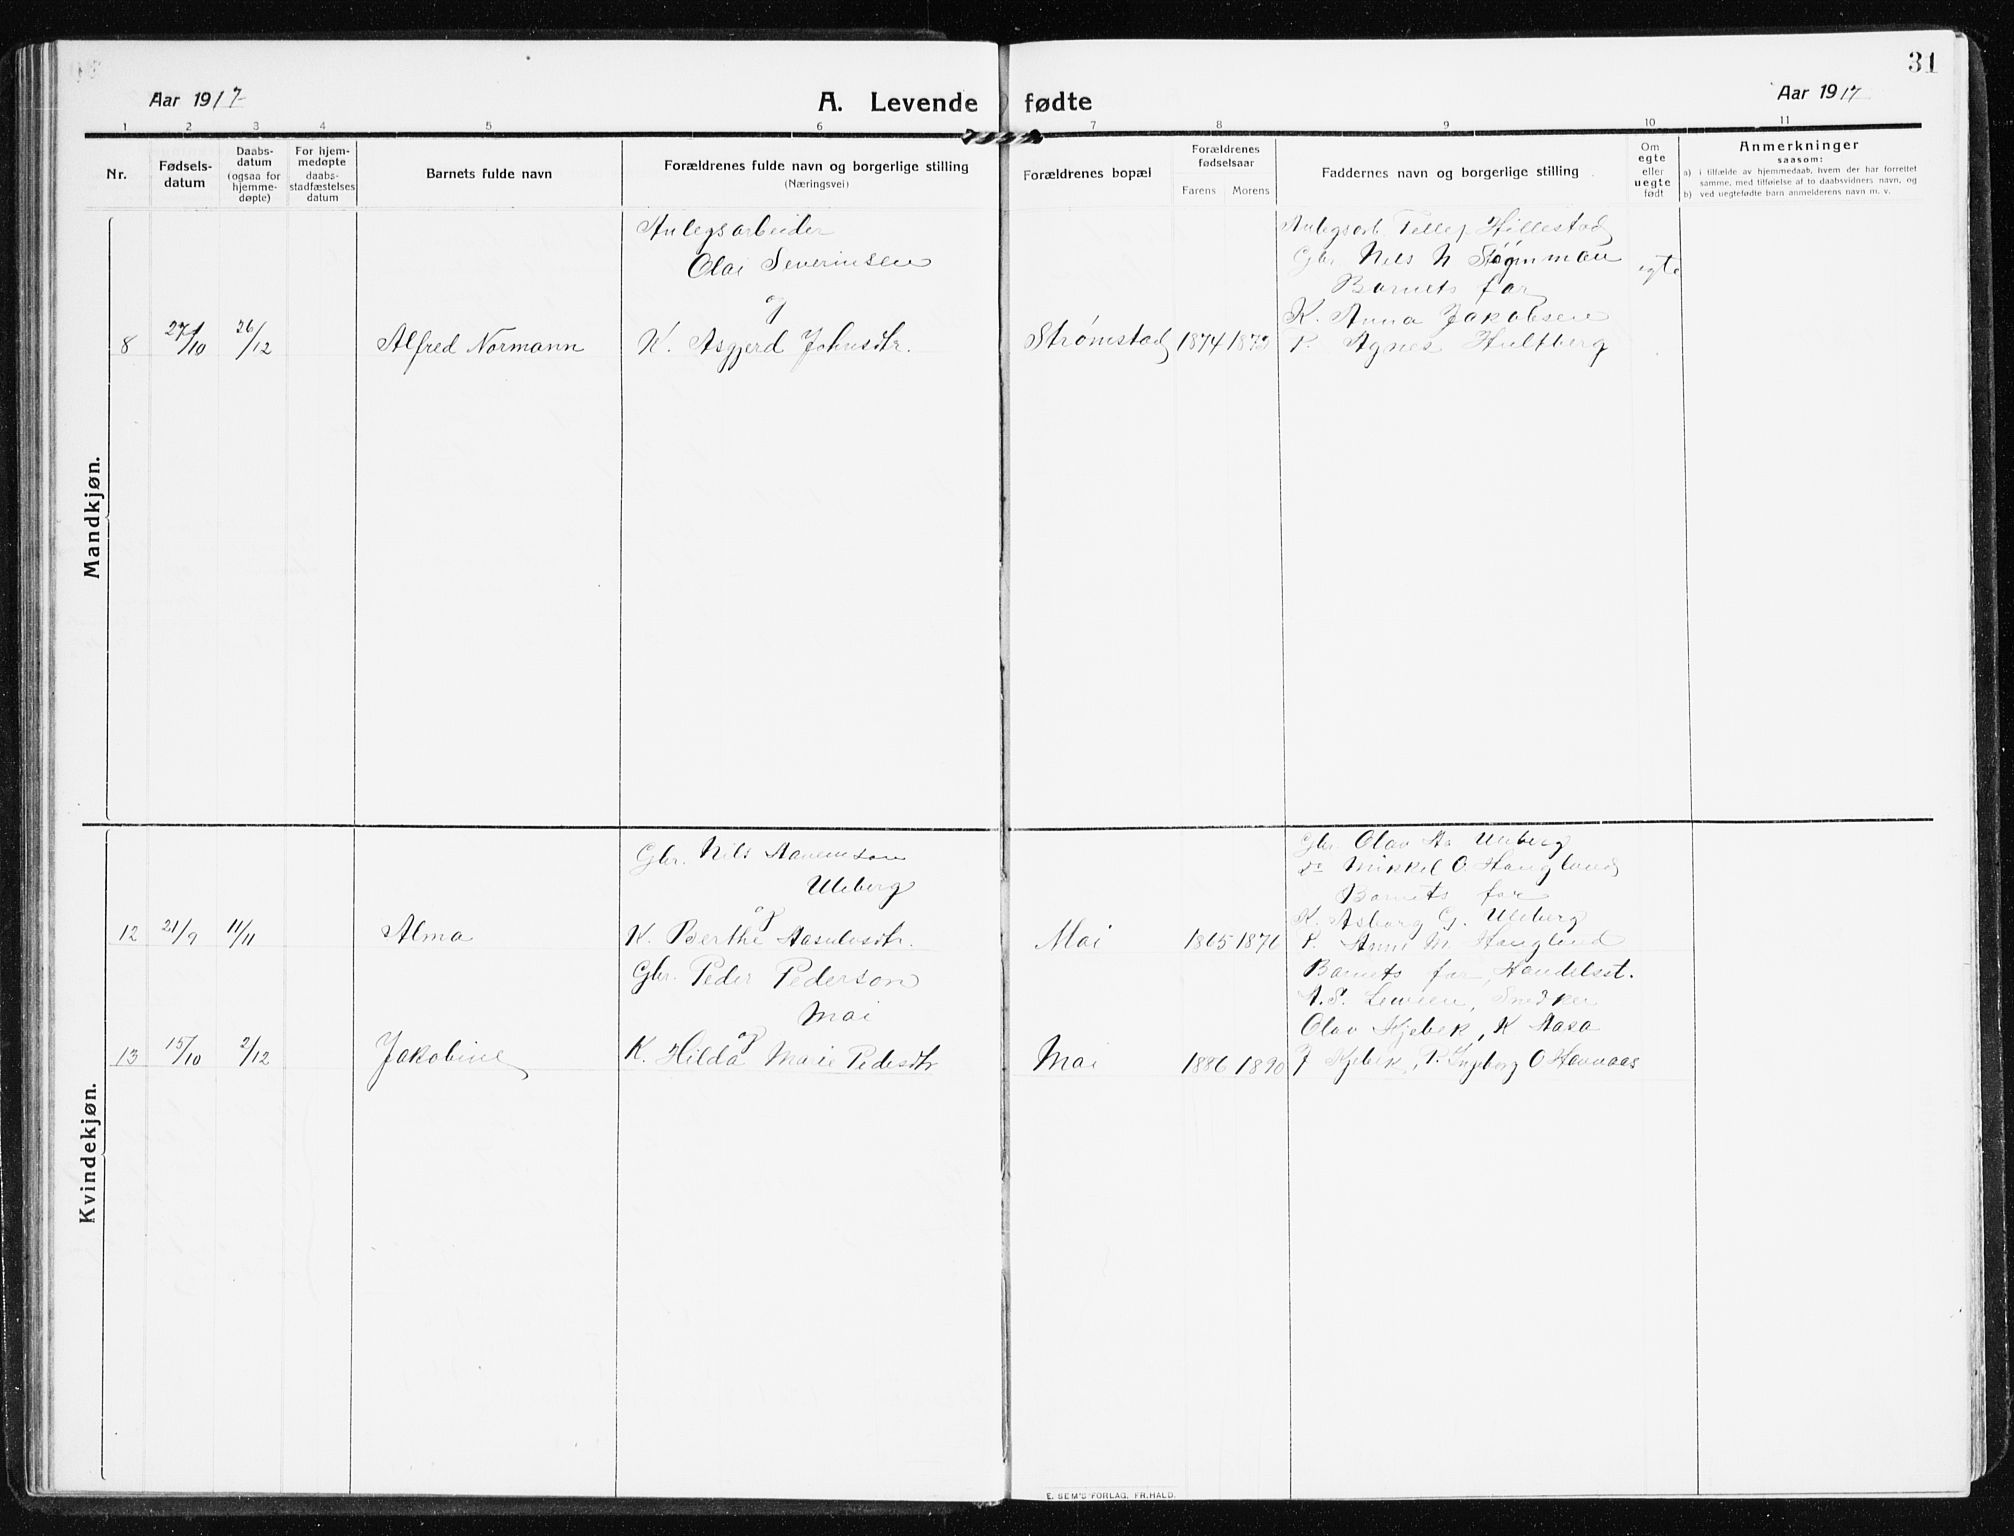 31
Aar 1917
A. Levende fødte
Aar 1917
1 2 3 4 5 6 7 8 9 10 11
Nr.
Fødsels-
datum
Daabs-
datum
(ogsaa for
hjemme-
døpte)
For hjem-
medøpte
daabs-
stadfæstelses
datum
Barnets fulde navn
Forældrenes fulde navn og borgerlige stilling
(Næringsvei)
Forældrenes bopæl
Forældrenes
fødselsaar
Farens Morens
Faddernes navn og borgerlige stilling
Om
egte
eller
uegte
født
Anmerkninger
saasom:
a) i tilfælde av hjemmedaab, hvem der har forrettet
samme, med tilføielse af to daabsvidners navn, og
b) ved uegtefødte barn anmelderens navn m. v.
Mandkjøn.
8
27/10
26/12
Alfred Normann
Anlegsarbeider
Olai Severinsen
og
K. Asgjerd Johnsdtr.
Strømstad
1874
Anlegsarb. Tellef Hillestad
Gbr. Nils N
Barnets far
K. Anna Jakobsen
P. Agnes Hultberg
egte
Kvindekjøn.
12
21/9
11/11
Alma
Gbr. Nils Aanenson
Uleberg
og
K. Berthe Aasulvsdtr.
Mai
1865 1876
Gbr. Olav Aa Uleberg
do Mikkel O Haugland
Barnets far
K. Asborg G. Uleberg
P. Anne M. Haugland
13
15/10
2/12
Jakobine
Gbr. Peder Pederson
Mai
og
K. Hilda Marie Pedersdtr
Mai
1886 1890
Barnets far, Handelsst.
A. S. Snedker
Olav Kjebek, K Aasa
J Kjebek, P. Ingeborg O Hovaaas
E. SEM'S FORLAG, FR.HALD.